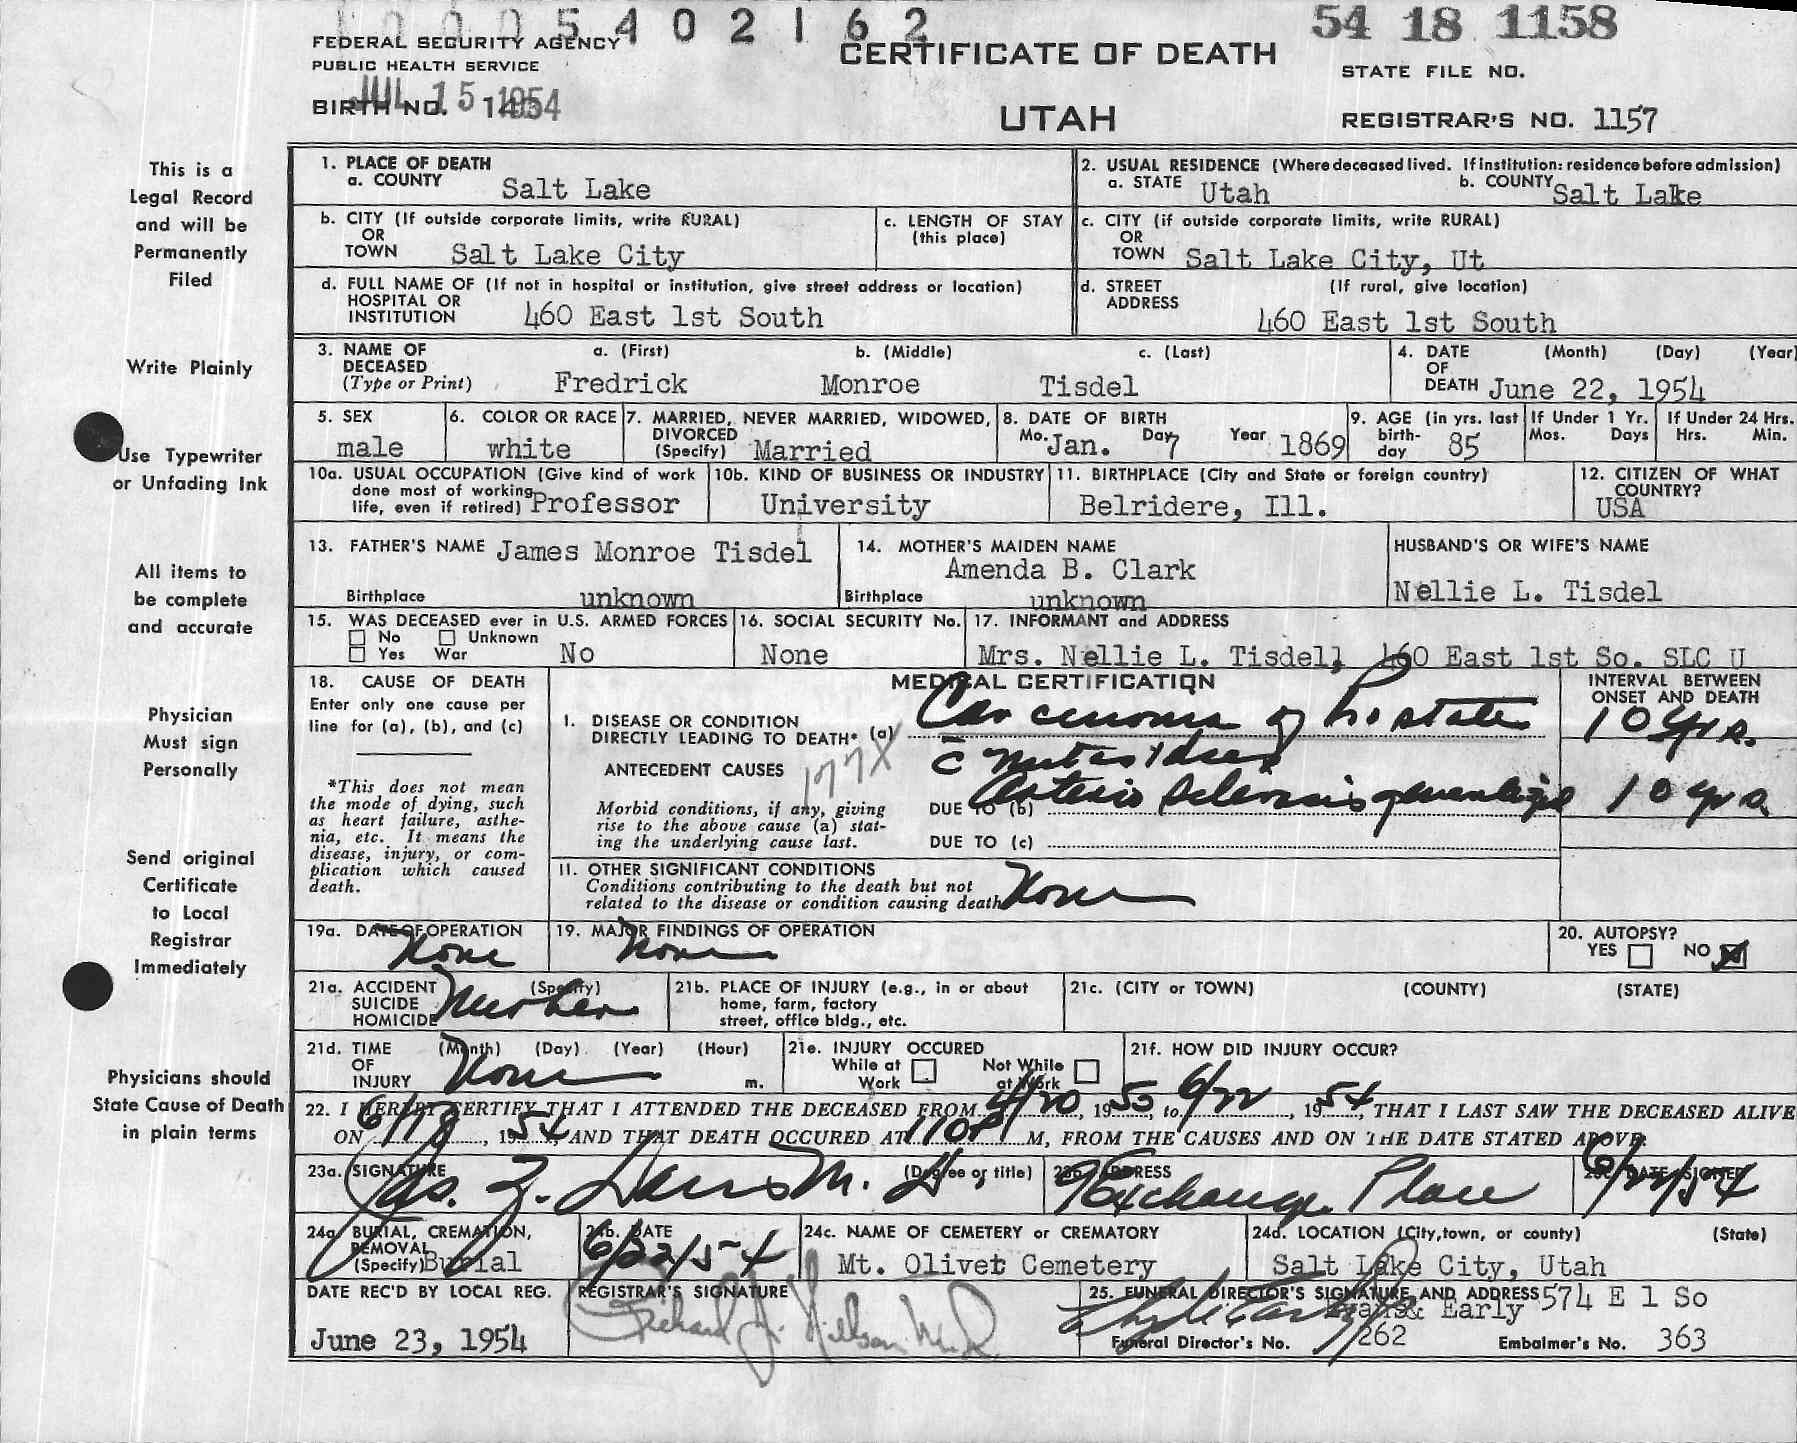 1 0 0 0 5 4 0 2 1 6 2
54 18 1158
FEDERAL SECURITY AGENCY
PUBLIC HEALTH SERVICE
CERTIFICATE OF DEATH
STATE FILE NO.
JUL 15 1954
BIRTH NO.
UTAH
REGISTRAR'S NO. 1157
This is a
Legal Record
and will be
Permanently
Filed
Write Plainly
Use Typewriter
or Unfading Ink
All items to
be complete
and accurate
Physician
Must sign
Personally
Send original
Certificate
to Local
Registrar
Immediately
Physicians should
State Cause of Death
in plain terms
1. PLACE OF DEATH
a. COUNTY Salt Lake
2. USUAL RESIDENCE (Where deceased lived. If institution: residence before admission)
a. STATE Utah b. COUNTY Salt Lake
b. CITY (If outside corporate limits, write RURAL)
OR
TOWN Salt Lake City
c. LENGTH OF STAY
(this place)
c. CITY (if outside corporate limits, write RURAL)
OR
TOWN Salt Lake City, Ut
d. FULL NAME OF (If not in hospital or institution, give street address or location)
HOSPITAL OR
INSTITUTION 460 East 1st South
d. STREET (If rural, give location)
ADDRESS
460 East 1st South
3. NAME OF a. (First) b. (Middle) c. (Last)
DECEASED
(Type or Print) Fredrick Monroe Tisdel
4. DATE (Month) (Day) (Year)
OF
DEATH June 22, 1954
5. SEX
male
6. COLOR OR RACE
white
7. MARRIED, NEVER MARRIED, WIDOWED,
DIVORCED
(Specify) Married
8. DATE OF BIRTH
Mo. Jan. Day 7 Year 1869
9. AGE (in yrs. last
birth-
day 85
If Under 1 Yr.
Mos. Days
If Under 24 Hrs.
Hrs. Min.
10a. USUAL OCCUPATION (Give kind of work
done most of working
life, even if retired) Professor
10b. KIND OF BUSINESS OR INDUSTRY
University
11. BIRTHPLACE (City and State or foreign country)
Belridere, Ill.
12. CITIZEN OF WHAT
COUNTRY?
USA
13. FATHER'S NAME James Monroe Tisdel
Birthplace unknown
14. MOTHER'S MAIDEN NAME
Amenda B. Clark
Birthplace unknown
HUSBAND'S OR WIFE'S NAME
Nellie L. Tisdel
15. WAS DECEASED ever in U.S. ARMED FORCES
No Unknown
Yes War No
16. SOCIAL SECURITY No.
None
17. INFORMANT and ADDRESS
Mrs. Nellie L. Tisdell 460 East 1st So. SLC U
18. CAUSE OF DEATH
Enter only one cause per
line for (a), (b), and (c)
*This does not mean
the mode of dying, such
as heart failure, asthe-
nia, etc. It means the
disease, injury, or com-
plication which caused
death.
MEDICAL CERTIFICATION
INTERVAL BETWEEN
ONSET AND DEATH
I. DISEASE OR CONDITION
DIRECTLY LEADING TO DEATH* (a) Carcinoma of Prostate 10 yrs.
ANTECEDENT CAUSES 177X
Morbid conditions, if any, giving
rise to the above cause (a) stat-
ing the underlying cause last.
DUE TO (b) Arterio Sclerosis generalized 10 yrs.
DUE TO (c)
11. OTHER SIGNIFICANT CONDITIONS
Conditions contributing to the death but not
related to the disease or condition causing death None
19a. DATE OF OPERATION
None
19. MAJOR FINDINGS OF OPERATION
None
20. AUTOPSY?
YES NO
21a. ACCIDENT (Specify)
SUICIDE
HOMICIDE
21b. PLACE OF INJURY (e.g., in or about
home, farm, factory
street, office bldg., etc.
21c. (CITY or TOWN) (COUNTY) (STATE)
21d. TIME (Month) (Day) (Year) (Hour)
OF
INJURY None m.
21e. INJURY OCCURED
While at Not While
Work at Work
21f. HOW DID INJURY OCCUR?
22. I HEREBY CERTIFY THAT I ATTENDED THE DECEASED FROM 4/20, 1953, to 6/22, 1954, THAT I LAST SAW THE DECEASED ALIVE
ON 6/18, 1954, AND THAT DEATH OCCURED AT 110P M, FROM THE CAUSES AND ON THE DATE STATED ABOVE.
23a. SIGNATURE (Degree or title)
Jas. Z. Davis M. D.
23b. ADDRESS
9 Exchange Place
23c. DATE SIGNED
6/22/54
24a. BURIAL, CREMATION,
REMOVAL
(Specify) Burial
24b. DATE
6/22/54
24c. NAME OF CEMETERY OR CREMATORY
Mt. Olivet Cemetery
24d. LOCATION (City, town, or county) (State)
Salt Lake City, Utah
DATE REC'D BY LOCAL REG.
June 23, 1954
REGISTRAR'S SIGNATURE
25. FUNERAL DIRECTOR'S SIGNATURE AND ADDRESS 574 E 1 So
Evans & Early
Funeral Director's No. 262 Embalmer's No. 363